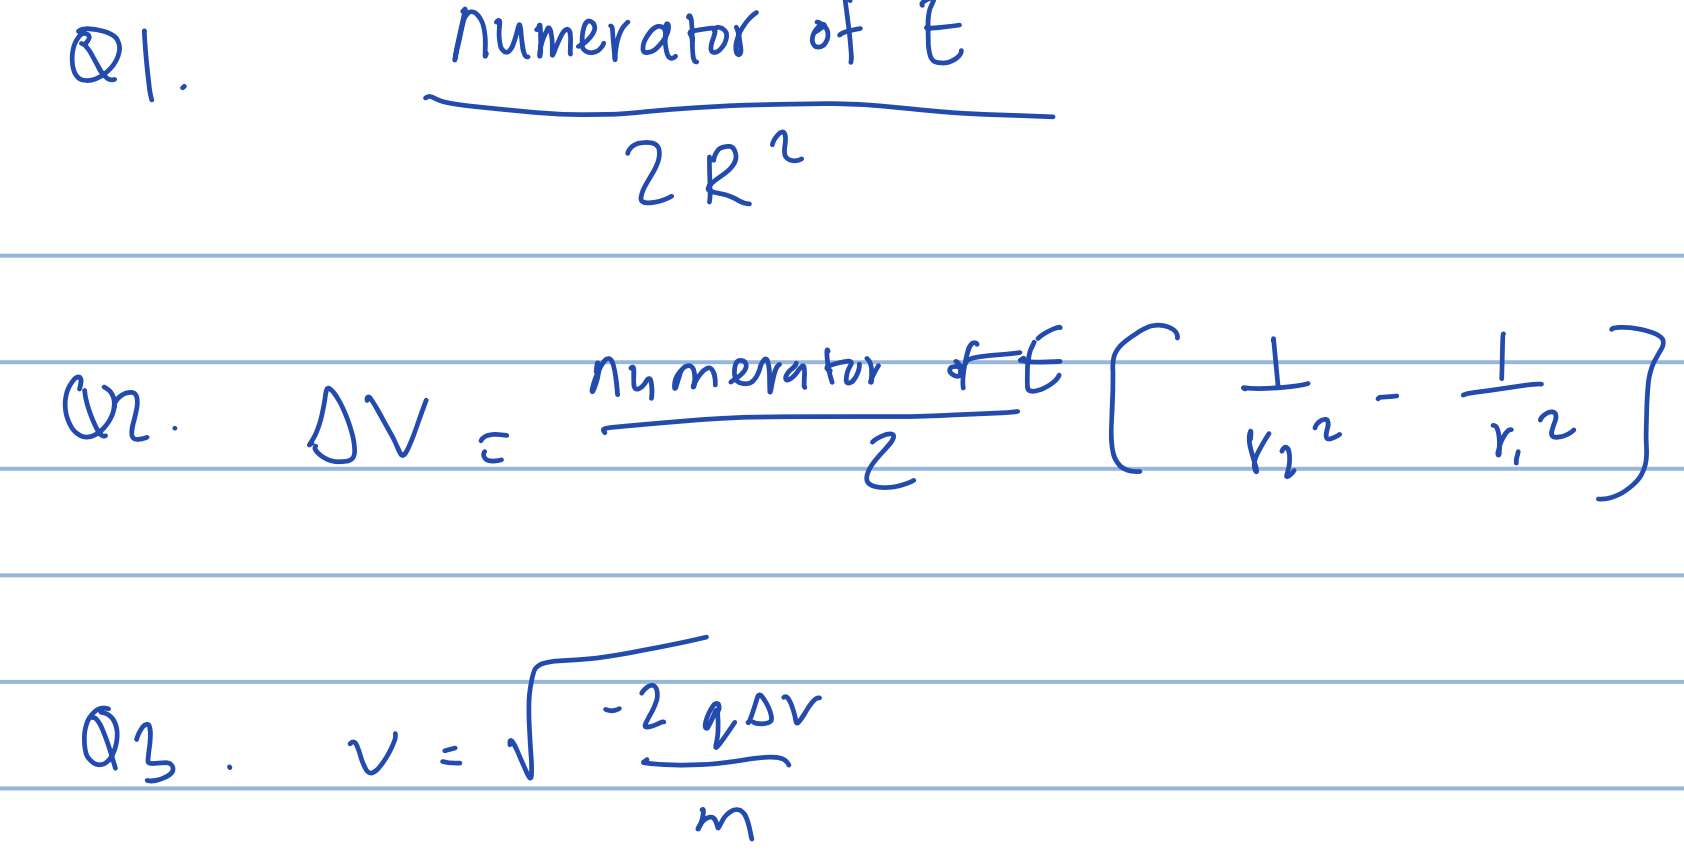 Q1. numerator of E
2R²
Q2. ΔV = numerator of E / 2 [ 1/r₂² - 1/r₁² ]
Q3. v = √ -2qΔV / m